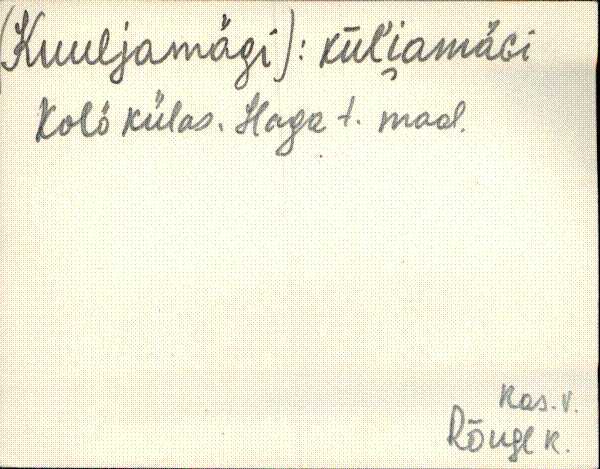 (Kuuljamägi): kūl'i̯amäɢi
Kolõ külas. Haga t. maal.
Kas. v.
Rõuge k.